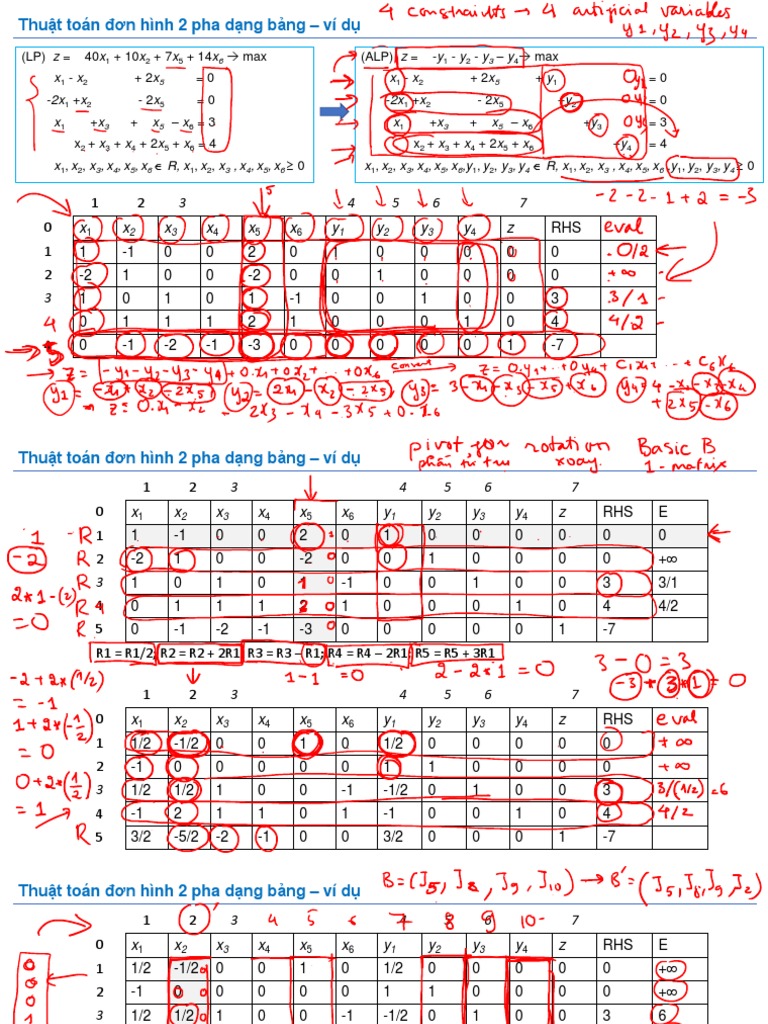 4 constraints → 4 artificial variables
y1, y2, y3, y4
Thuật toán đơn hình 2 pha dạng bảng – ví dụ
(LP) z = 40x1 + 10x2 + 7x5 + 14x6 → max
x1 - x2 + 2x5 = 0
-2x1 + x2 - 2x5 = 0
x1 + x3 + x5 – x6 = 3
x2 + x3 + x4 + 2x5 + x6 = 4
x1, x2, x3, x4, x5, x6 ∈ R, x1, x2, x3, x4, x5, x6 ≥ 0
(ALP) z = -y1 - y2 - y3 – y4 → max
x1 - x2 + 2x5 + y1 = 0
-2x1 + x2 - 2x5 + y2 = 0
x1 + x3 + x5 – x6 + y3 = 3
x2 + x3 + x4 + 2x5 + x6 + y4 = 4
x1, x2, x3, x4, x5, x6, y1, y2, y3, y4 ∈ R, x1, x2, x3, x4, x5, x6, y1, y2, y3, y4 ≥ 0
-2-2-1+2 = -3
1 2 3 5 4 5 6 7
0 x1 x2 x3 x4 x5 x6 y1 y2 y3 y4 z RHS eval
1 1 -1 0 0 2 0 1 0 0 0 0 0 0/2
2 -2 1 0 0 -2 0 0 1 0 0 0 0 +∞
3 1 0 1 0 1 -1 0 0 1 0 0 3 3/1
4 0 1 1 1 2 1 0 0 0 1 0 4 4/2
5 0 -1 -2 -1 -3 0 0 0 0 0 1 -7
→ z = -y1-y2-y3-y4 + 0.x1+0x2+...+0x6 convert → z = 0.y1+..+0y4+c1x1+...+c6x6
y1 = -x1+x2-2x5 y2 = 2x1-x2+2x5 y3 = 3-x1-x3-x5+x6 y4 = 4-x2-x3-x4
z = 0.x1 - x2 - 2x3 - x4 - 3x5 + 0.x6 + 2x5 - x6
pivot gor rotation Basic B
phần tử trụ xoay 1-matrix
Thuật toán đơn hình 2 pha dạng bảng – ví dụ
1 2 3 4 5 6 7
0 x1 x2 x3 x4 x5 x6 y1 y2 y3 y4 z RHS E
1 -R 1 1 -1 0 0 2 0 1 0 0 0 0 0 0
-2 R 2 -2 1 0 0 -2 0 0 1 0 0 0 0 +∞
2*1-(2) R 3 1 0 1 0 1 -1 0 0 1 0 0 3 3/1
=0 R 4 0 1 1 1 2 1 0 0 0 1 0 4 4/2
R 5 0 -1 -2 -1 -3 0 0 0 0 0 1 -7
R1 = R1/2; R2 = R2 + 2R1; R3 = R3 – R1; R4 = R4 – 2R1; R5 = R5 + 3R1
1-1 =0 2-2*1 =0
3-0=3
-3+3*1=0
-2+2*(1/2)
=-1
1+2*(-1/2)
=0
0+2*(1/2)
=1
1 2 3 4 5 6 7
0 x1 x2 x3 x4 x5 x6 y1 y2 y3 y4 z RHS eval
1 1/2 -1/2 0 0 1 0 1/2 0 0 0 0 0 +∞
2 -1 0 0 0 0 0 1 1 0 0 0 0 +∞
3 1/2 1/2 1 0 0 -1 -1/2 0 1 0 0 3 3/(1/2)=6
4 -1 2 1 1 0 1 -1 0 0 1 0 4 4/2
R 5 3/2 -5/2 -2 -1 0 0 3/2 0 0 0 1 -7
B=(J5, J8, J9, J10) → B'=(J5, J8, J9, J2)
Thuật toán đơn hình 2 pha dạng bảng – ví dụ
1 2 3 4 5 6 7 8 9 10 7
0 x1 x2 x3 x4 x5 x6 y1 y2 y3 y4 z RHS E
1 1/2 -1/2 0 0 1 0 1/2 0 0 0 0 0 +∞
2 -1 0 0 0 0 0 1 1 0 0 0 0 +∞
3 1/2 1/2 1 0 0 -1 -1/2 0 1 0 0 3 6
0
0
0
1